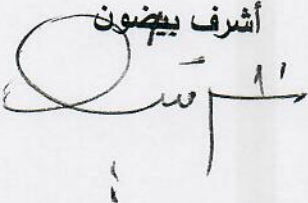 أشرف بيضون